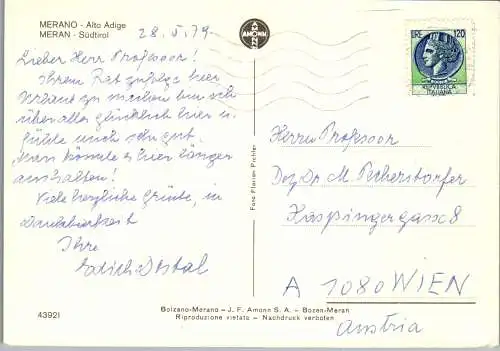 MERANO - Alto Adige
MERAN - Südtirol
28.V.79
AMONN
LIRE 120
REPUBBLICA
ITALIANA
Lieber Herr Professor!
Ihrem Rat zufolge hier
Urlaub zu machen bin ich
überaus glücklich hier u.
fühle mich sehr gut.
Man könnte es hier länger
aushalten!
Viele herzliche Grüße, in
Dankbarkeit
Ihre
Edith Dostal
Foto Flavian Pichler
Herrn Professor
Doz Dr M Pecherstorfer
Haspingergasse 8
A 1080 WIEN
Austria
43921
Bolzano-Merano - J. F. Amonn S. A. - Bozen-Meran
Riproduzione vietata - Nachdruck verboten